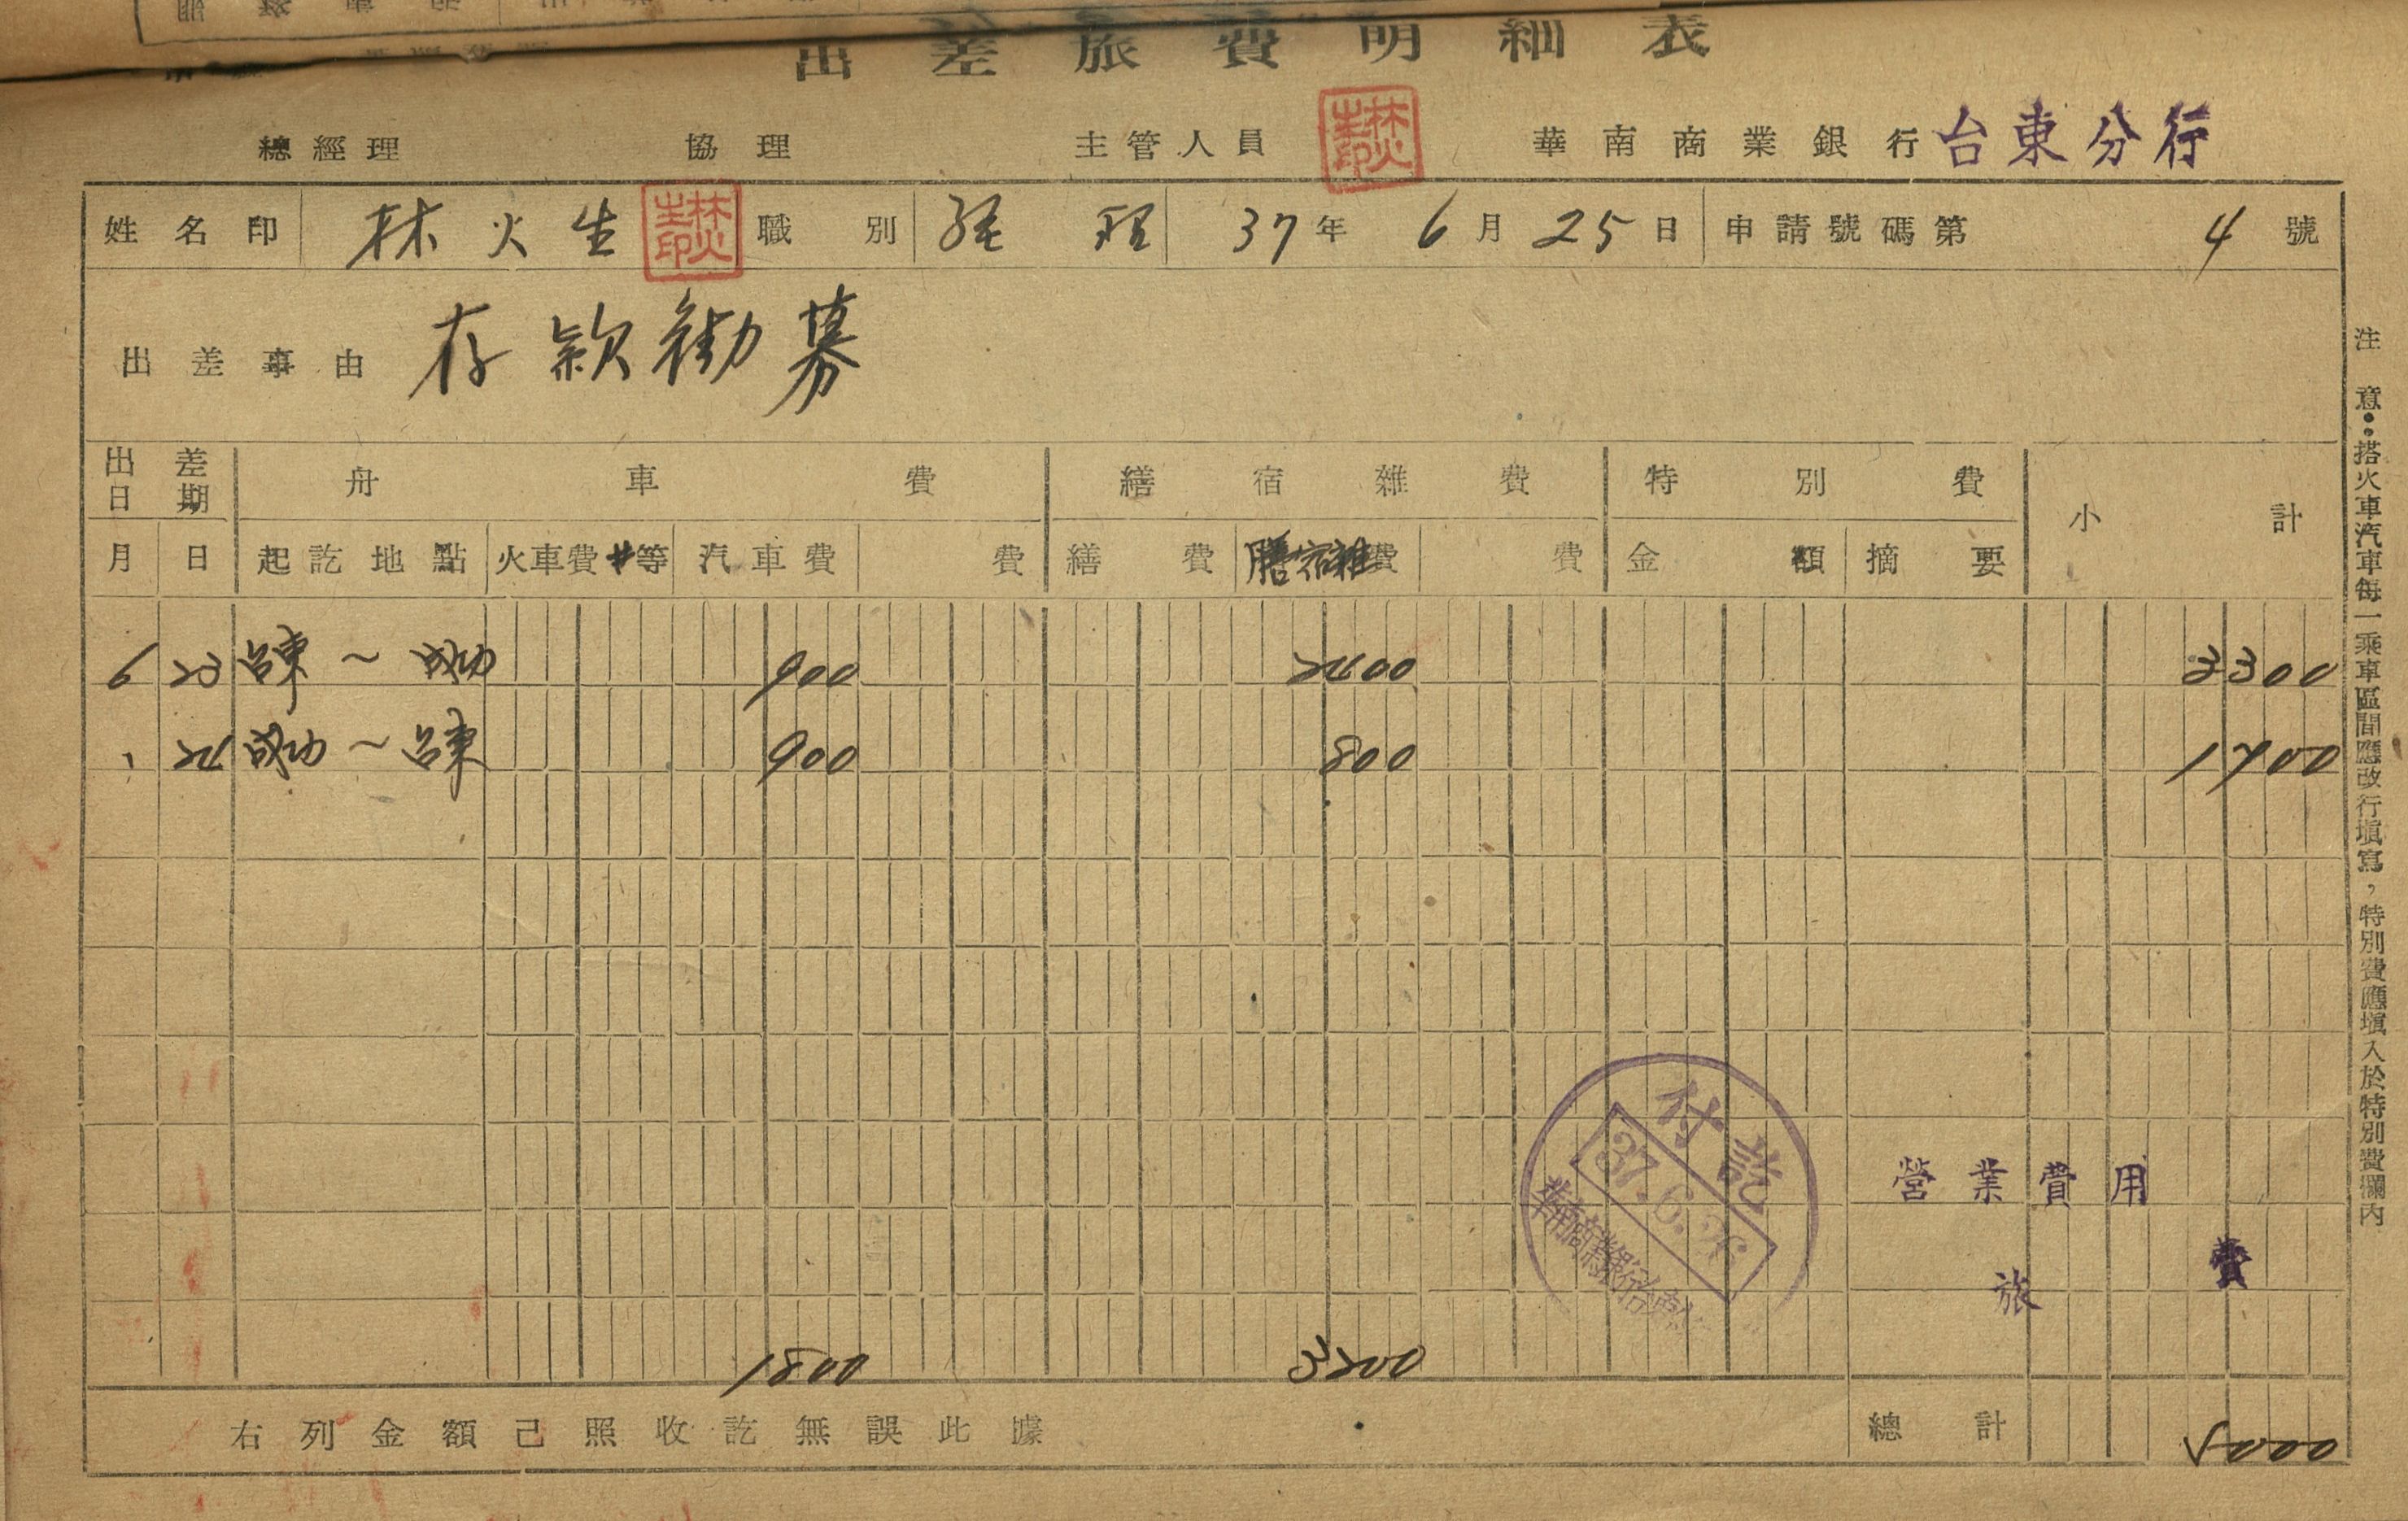 出差旅費明細表
總經理 協理 主管人員 林火生印 華南商業銀行 台東分行
姓名印 林火生 林火生印 職別 經理 37年6月25日 申請號碼第4號
出差事由 存款勸募
出差日期 舟車費 繕宿雜費 特別費 小計
月 日 起訖地點 火車費 等 汽車費 費 繕費 膳宿雜費 費 金額 摘要
6 23 台東~成功 900 2400 3300
、 24 成功~台東 900 800 1700
付訖
37.6.26
華南商業銀行台東
營業費用
旅費
1800 3200
右列金額己照收訖無誤此據 總計 5000
注意:搭火車汽車每一乘車區間應改行塡寫,特別費應塡入於特別費欄內